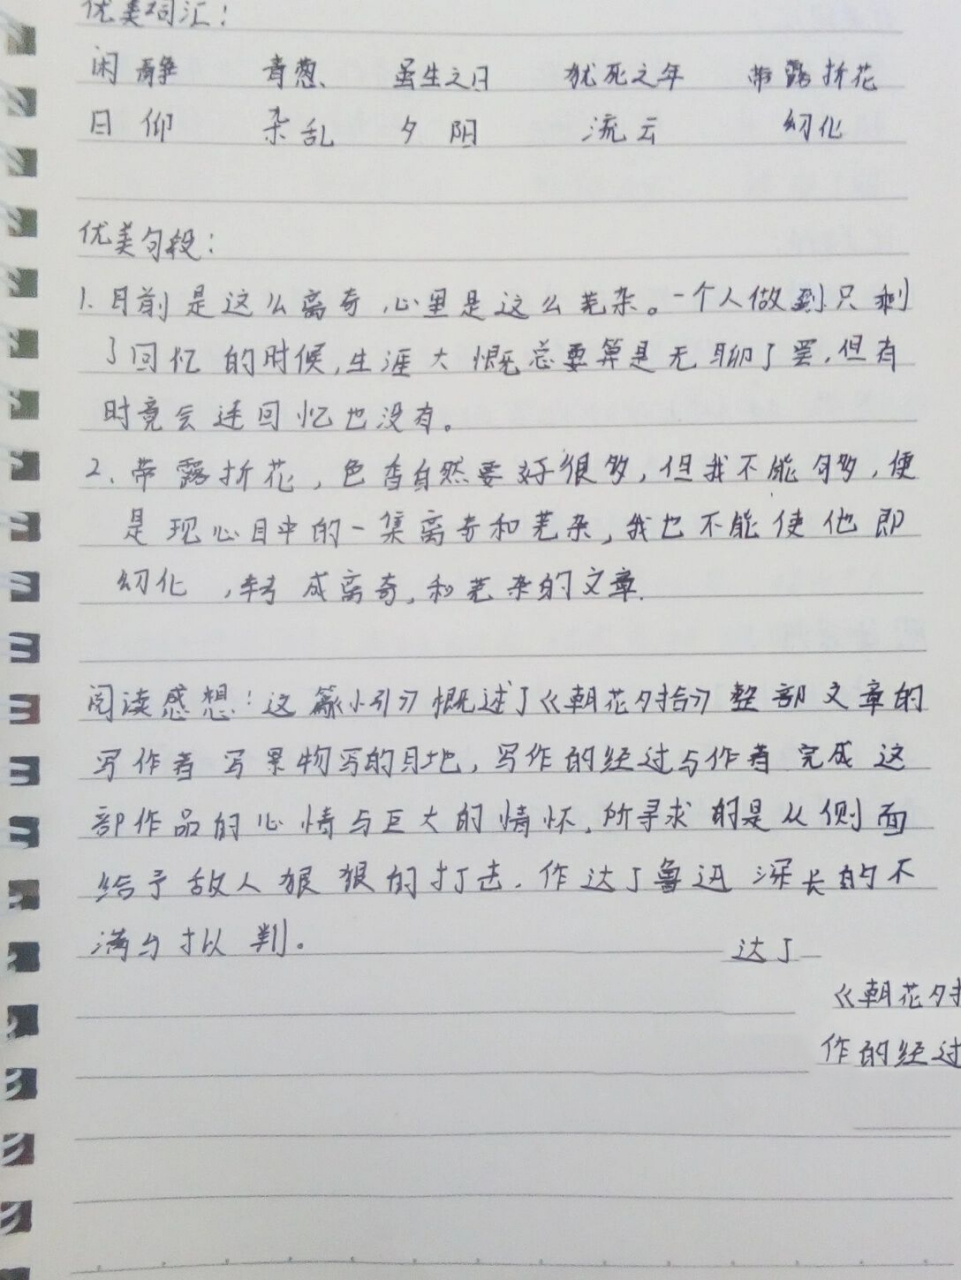 优美词汇：
闲静 青葱、 虽生之日 犹死之年 带露折花
日仰 杂乱 夕阳 流云 幻化
优美句段：
1.目前是这么离奇,心里是这么芜杂。一个人做到只剩
了回忆的时候,生涯大概总要算是无聊了罢,但有
时竟会连回忆也没有。
2、带露折花,色香自然要好很多,但我不能够,便
是现心目中的一集离奇和芜杂,我也不能使他即
幻化,转成离奇,和芜杂的文章.
阅读感想：这篇小引》概述了《朝花夕拾》整部文章的
写作者写景物写的目地,写作的经过与作者完成这
部作品的心情与巨大的情怀,所寻求的是从侧面
给予敌人狠狠的打击.作达了鲁迅深长的不
满与批判。
达了
《朝花夕拾
作的经过